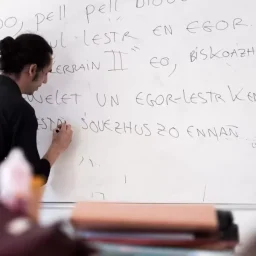 , pell pell
UL-LESTR EN EGOR
TERRAIN II" EO, BISKOAZH
WELET UN EGOR-LESTR KEN
ESTR SOUEZHUS ZO ENNAÑ